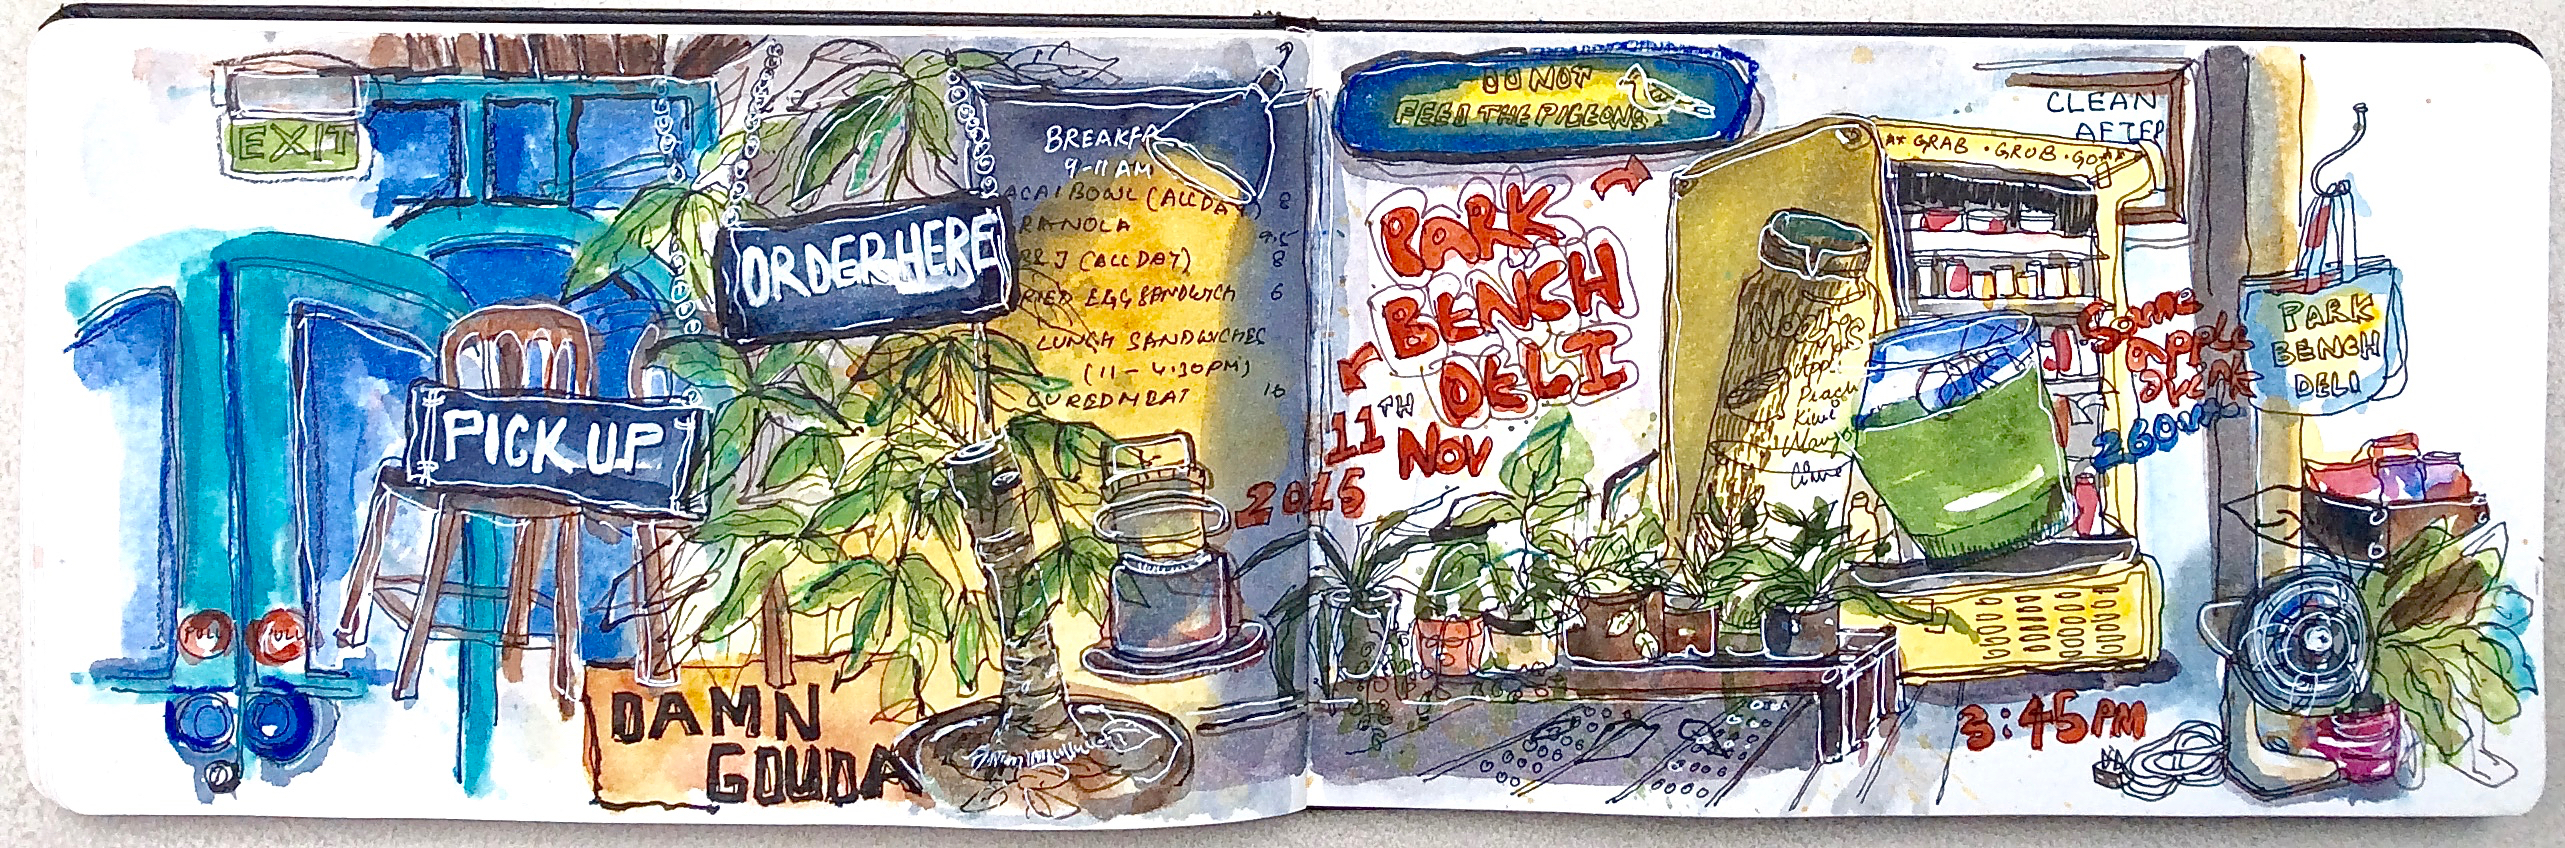 EXIT
PULL
PULL
PICK UP
ORDER HERE
DAMN
GOUDA
BREAKFA
9-11 AM
ACAI BOWL (ALL DAY) 8
RANOLA 9.5
B&J (ALL DAY) 8
RIED EGG SANDWICH 6
LUNCH SANDWICHES
(11 - 4:30PM)
CURED MEAT 16
DO NOT
FEED THE PIGEONS
PARK
BENCH
DELI
11TH
NOV
2015
GRAB · GRUB · GO
CLEAN
AFTER
Peach
Kiwi
Mango
Some
apple
drink
260ml
PARK
BENCH
DELI
3:45PM